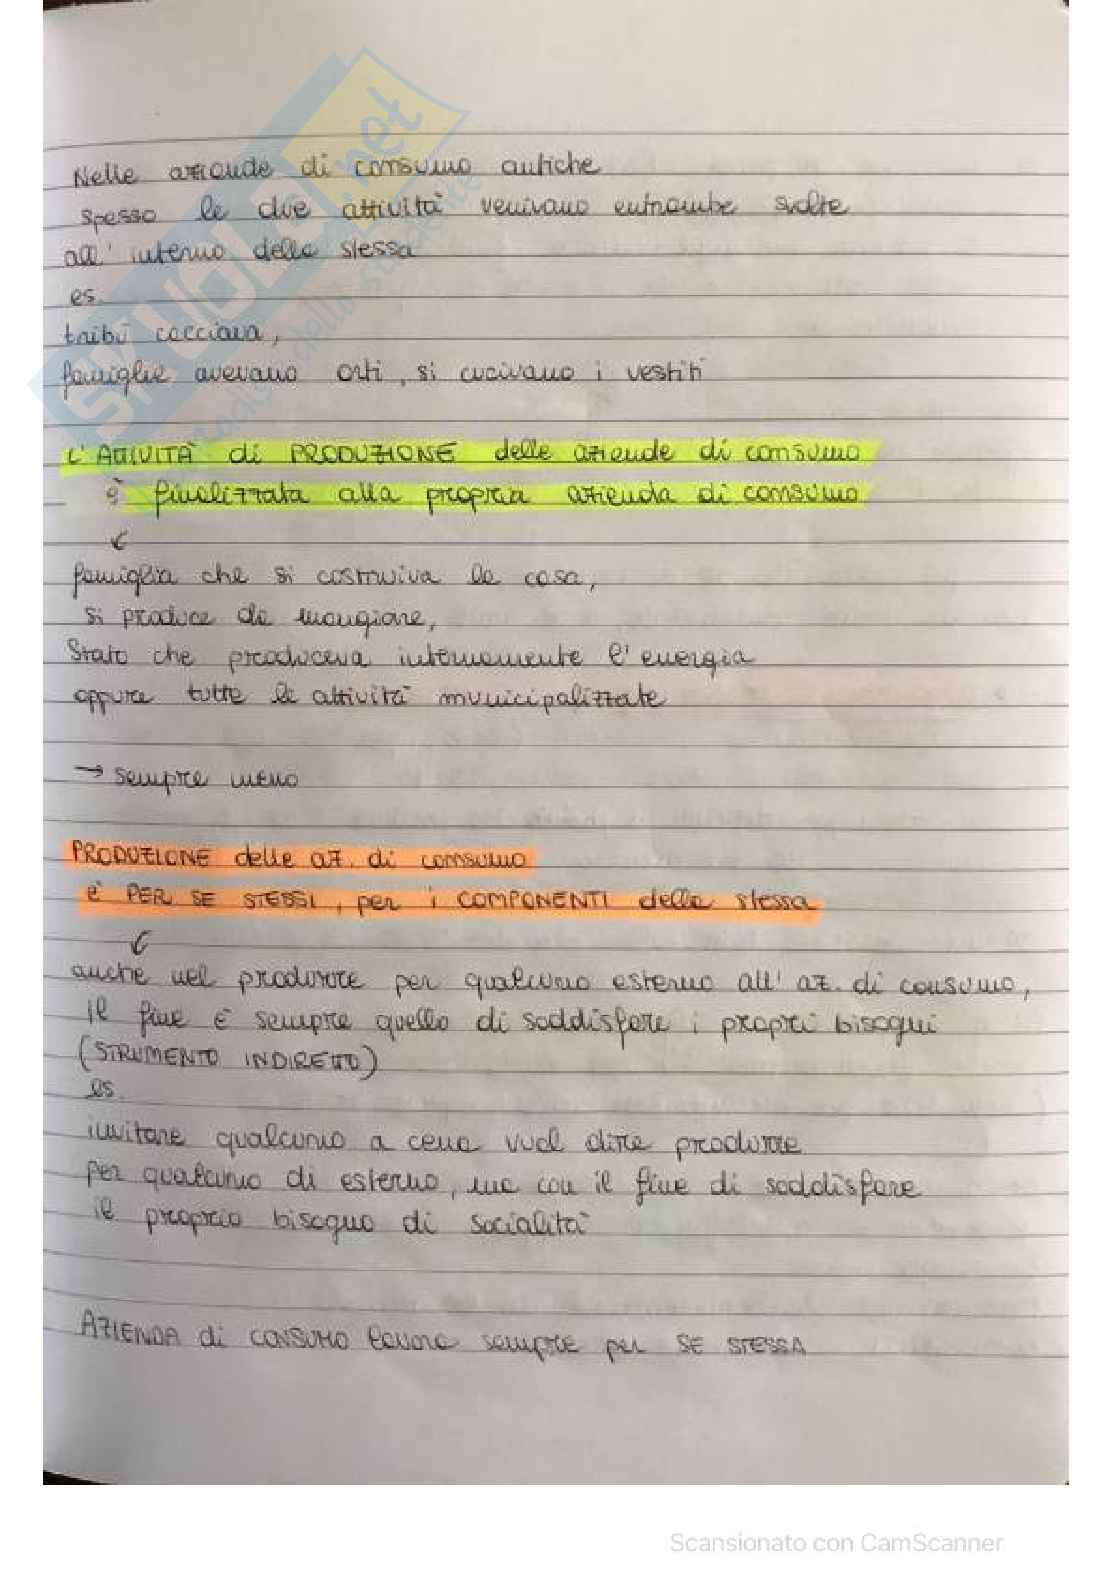 Nelle aziende di consumo antiche
spesso le due attività venivano entrambe svolte
all' interno della stessa
es.
tribù cacciava,
famiglie avevano orti, si cucivano i vestiti
L'ATTIVITÀ di PRODUZIONE delle aziende di consumo
è finalizzata alla propria azienda di consumo
famiglia che si costruiva la casa,
si produce da mangiare,
Stato che produceva internamente l'energia
oppure tutte le attività municipalizzate
→ sempre meno
PRODUZIONE delle az. di consumo
è PER SE STESSI, per i COMPONENTI della stessa
anche nel produrre per qualcuno esterno all' az. di consumo,
il fine è sempre quello di soddisfare i propri bisogni
(STRUMENTO INDIRETTO)
es.
invitare qualcuno a cena vuol dire produrre
per qualcuno di esterno, ma con il fine di soddisfare
il proprio bisogno di socialità
AZIENDA di CONSUMO lavora sempre per SE STESSA
Scansionato con CamScanner